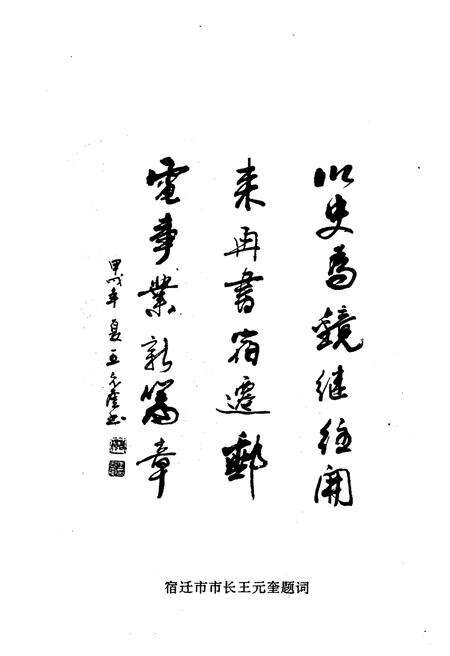 以史為鏡継往開
来再書宿遷郵
電事業新篇章
甲戌年夏王元奎书
宿迁市市长王元奎题词